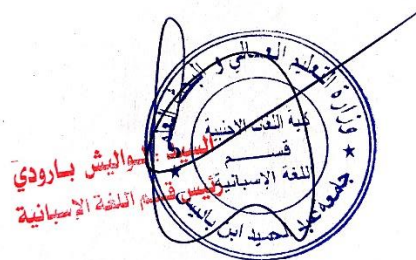 وزارة التعليم العالي و البحث العلمي
كلية اللغات الأجنبية
قسم
اللغة الإسبانية
جامعة عبد الحميد ابن باديس
السيد بارودي
رئيس قسم اللغة الإسبانية